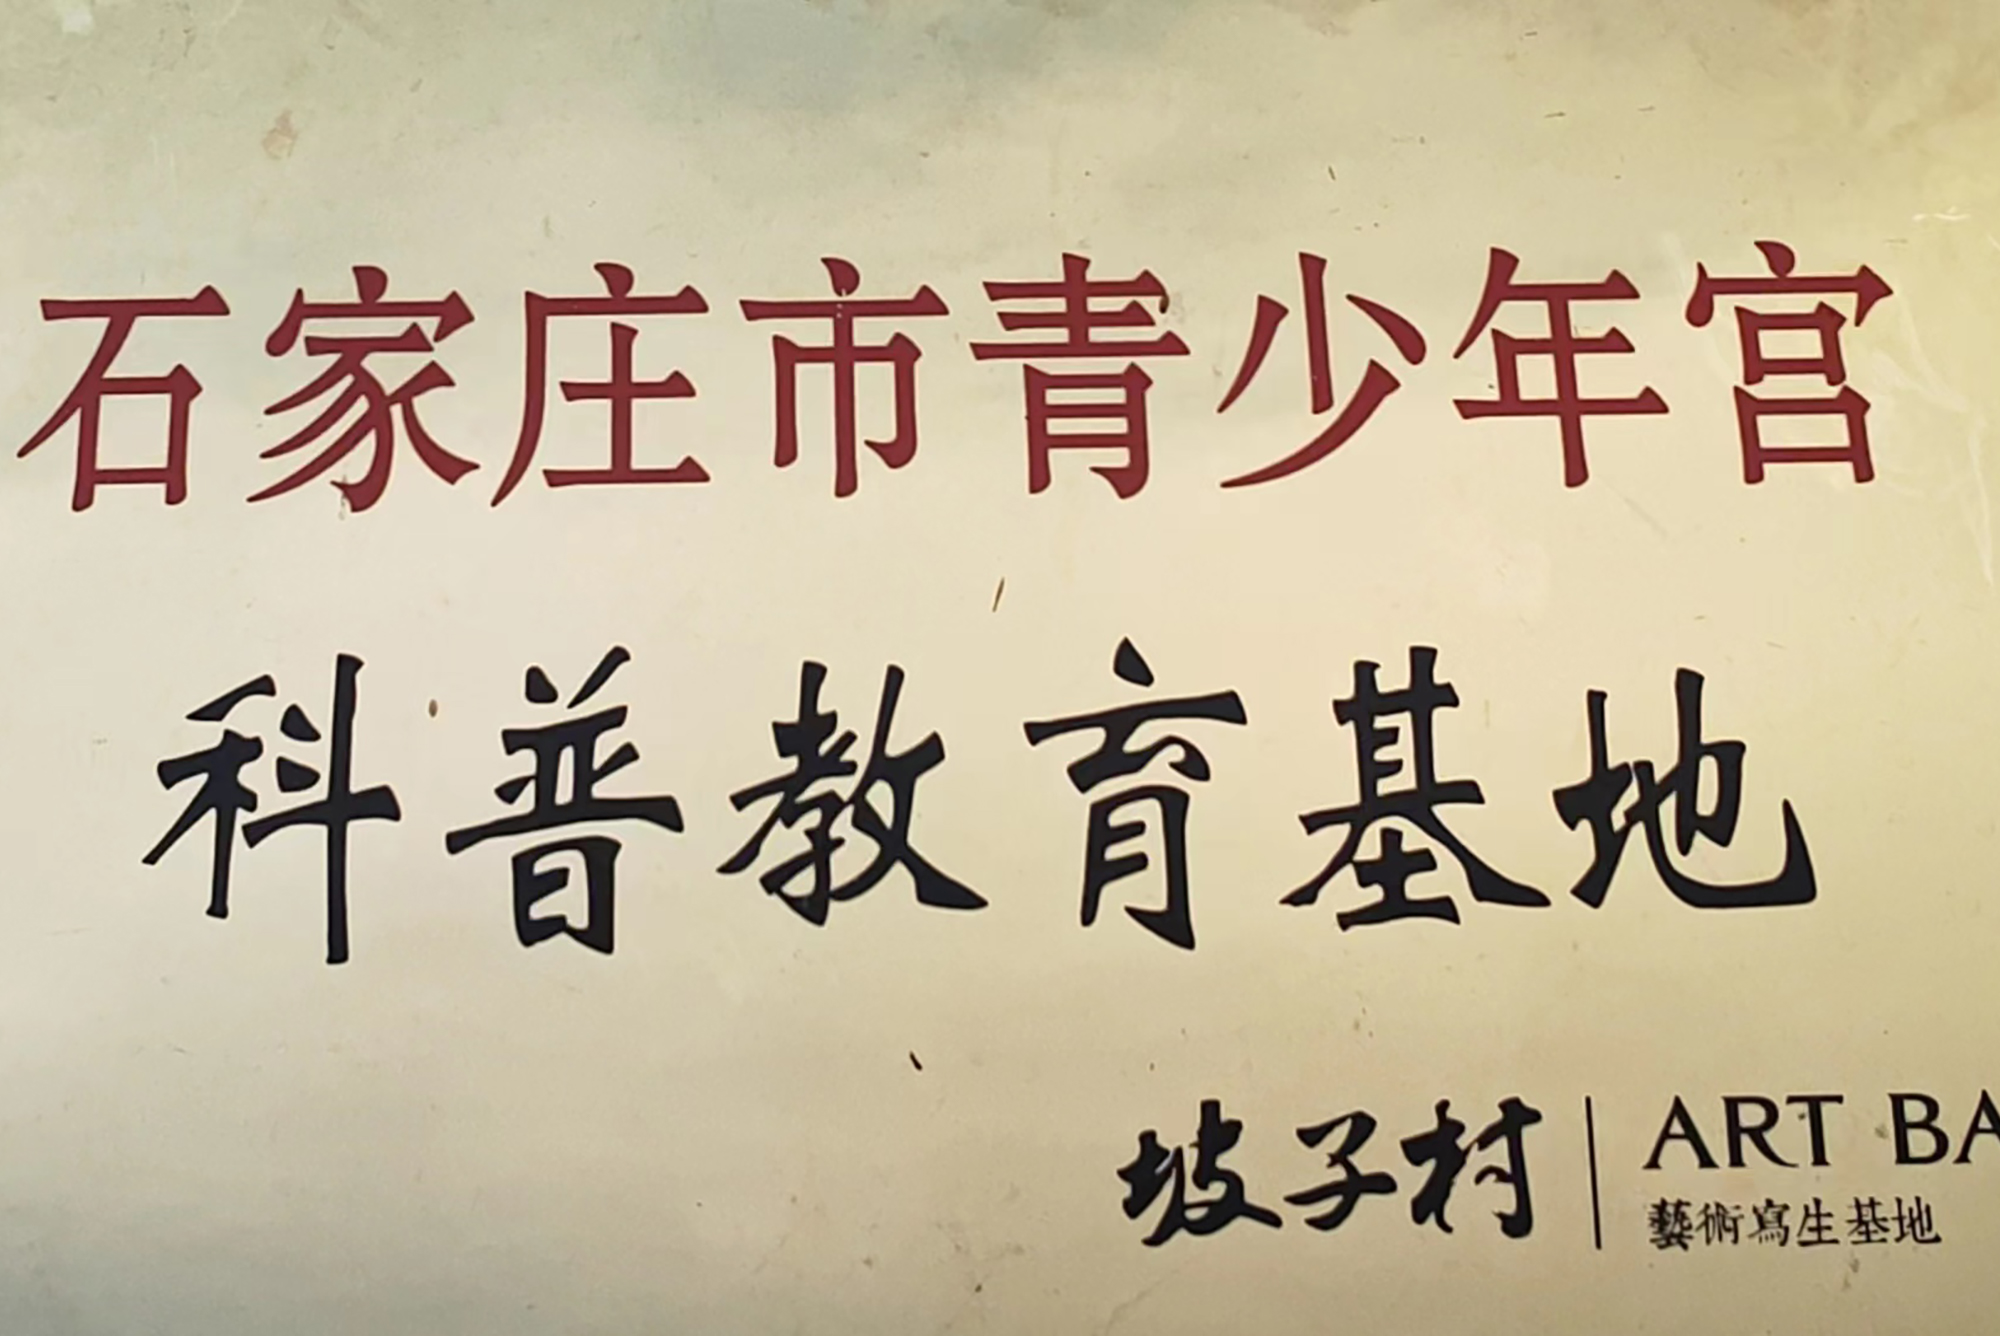 石家庄市青少年宫
科普教育基地
坡子村 ART BA
藝術寫生基地